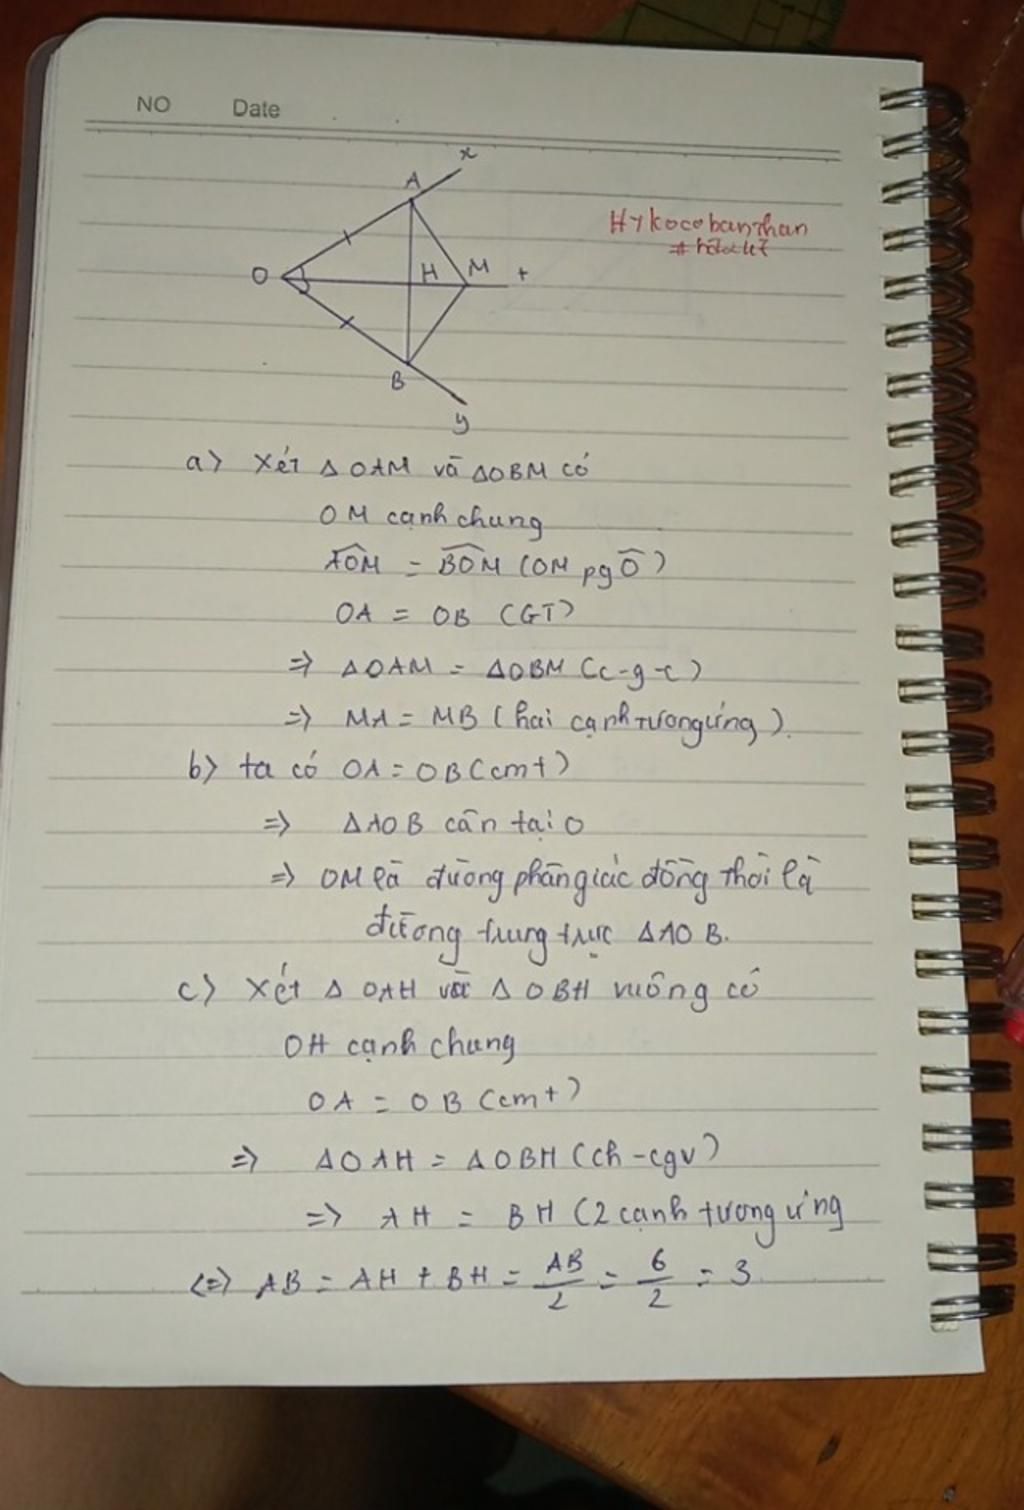 NO Date
x
A
Hykocobanthan
O H M t
B
y
a) Xét Δ OAM và ΔOBM có
OM cạnh chung
AOM = BOM (OM pg O)
OA = OB (GT)
=> ΔOAM = ΔOBM (c-g-c)
=> MA = MB (hai cạnh tương ứng).
b) ta có OA = OB (cmt)
=> ΔAOB cân tại O
=> OM là đường phân giác đồng thời là
đường trung trực ΔAOB.
c) Xét Δ OAH và Δ OBH vuông có
OH cạnh chung
OA = OB (cmt)
=> ΔOAH = ΔOBH (ch-cgv)
=> AH = BH (2 cạnh tương ứng
<=> AB = AH + BH = AB/2 = 6/2 = 3